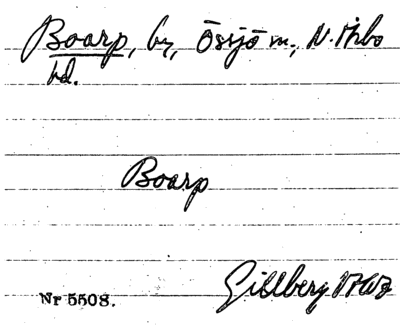 Boarp, by, Össjö sn, N. Åsbo
hd.
Boarp
Gillberg
Nr 5508.